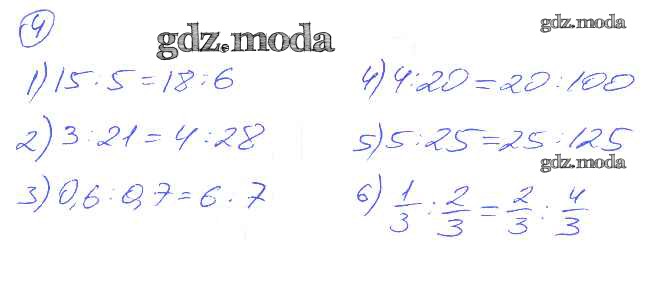 4
gdz.moda
gdz.moda
1) 15 : 5 = 18 : 6
2) 3 : 21 = 4 : 28
3) 0,6 : 0,7 = 6 . 7
4) 4 : 20 = 20 : 100
5) 5 : 25 = 25 : 125
gdz.moda
6) 1/3 : 2/3 = 2/3 : 4/3